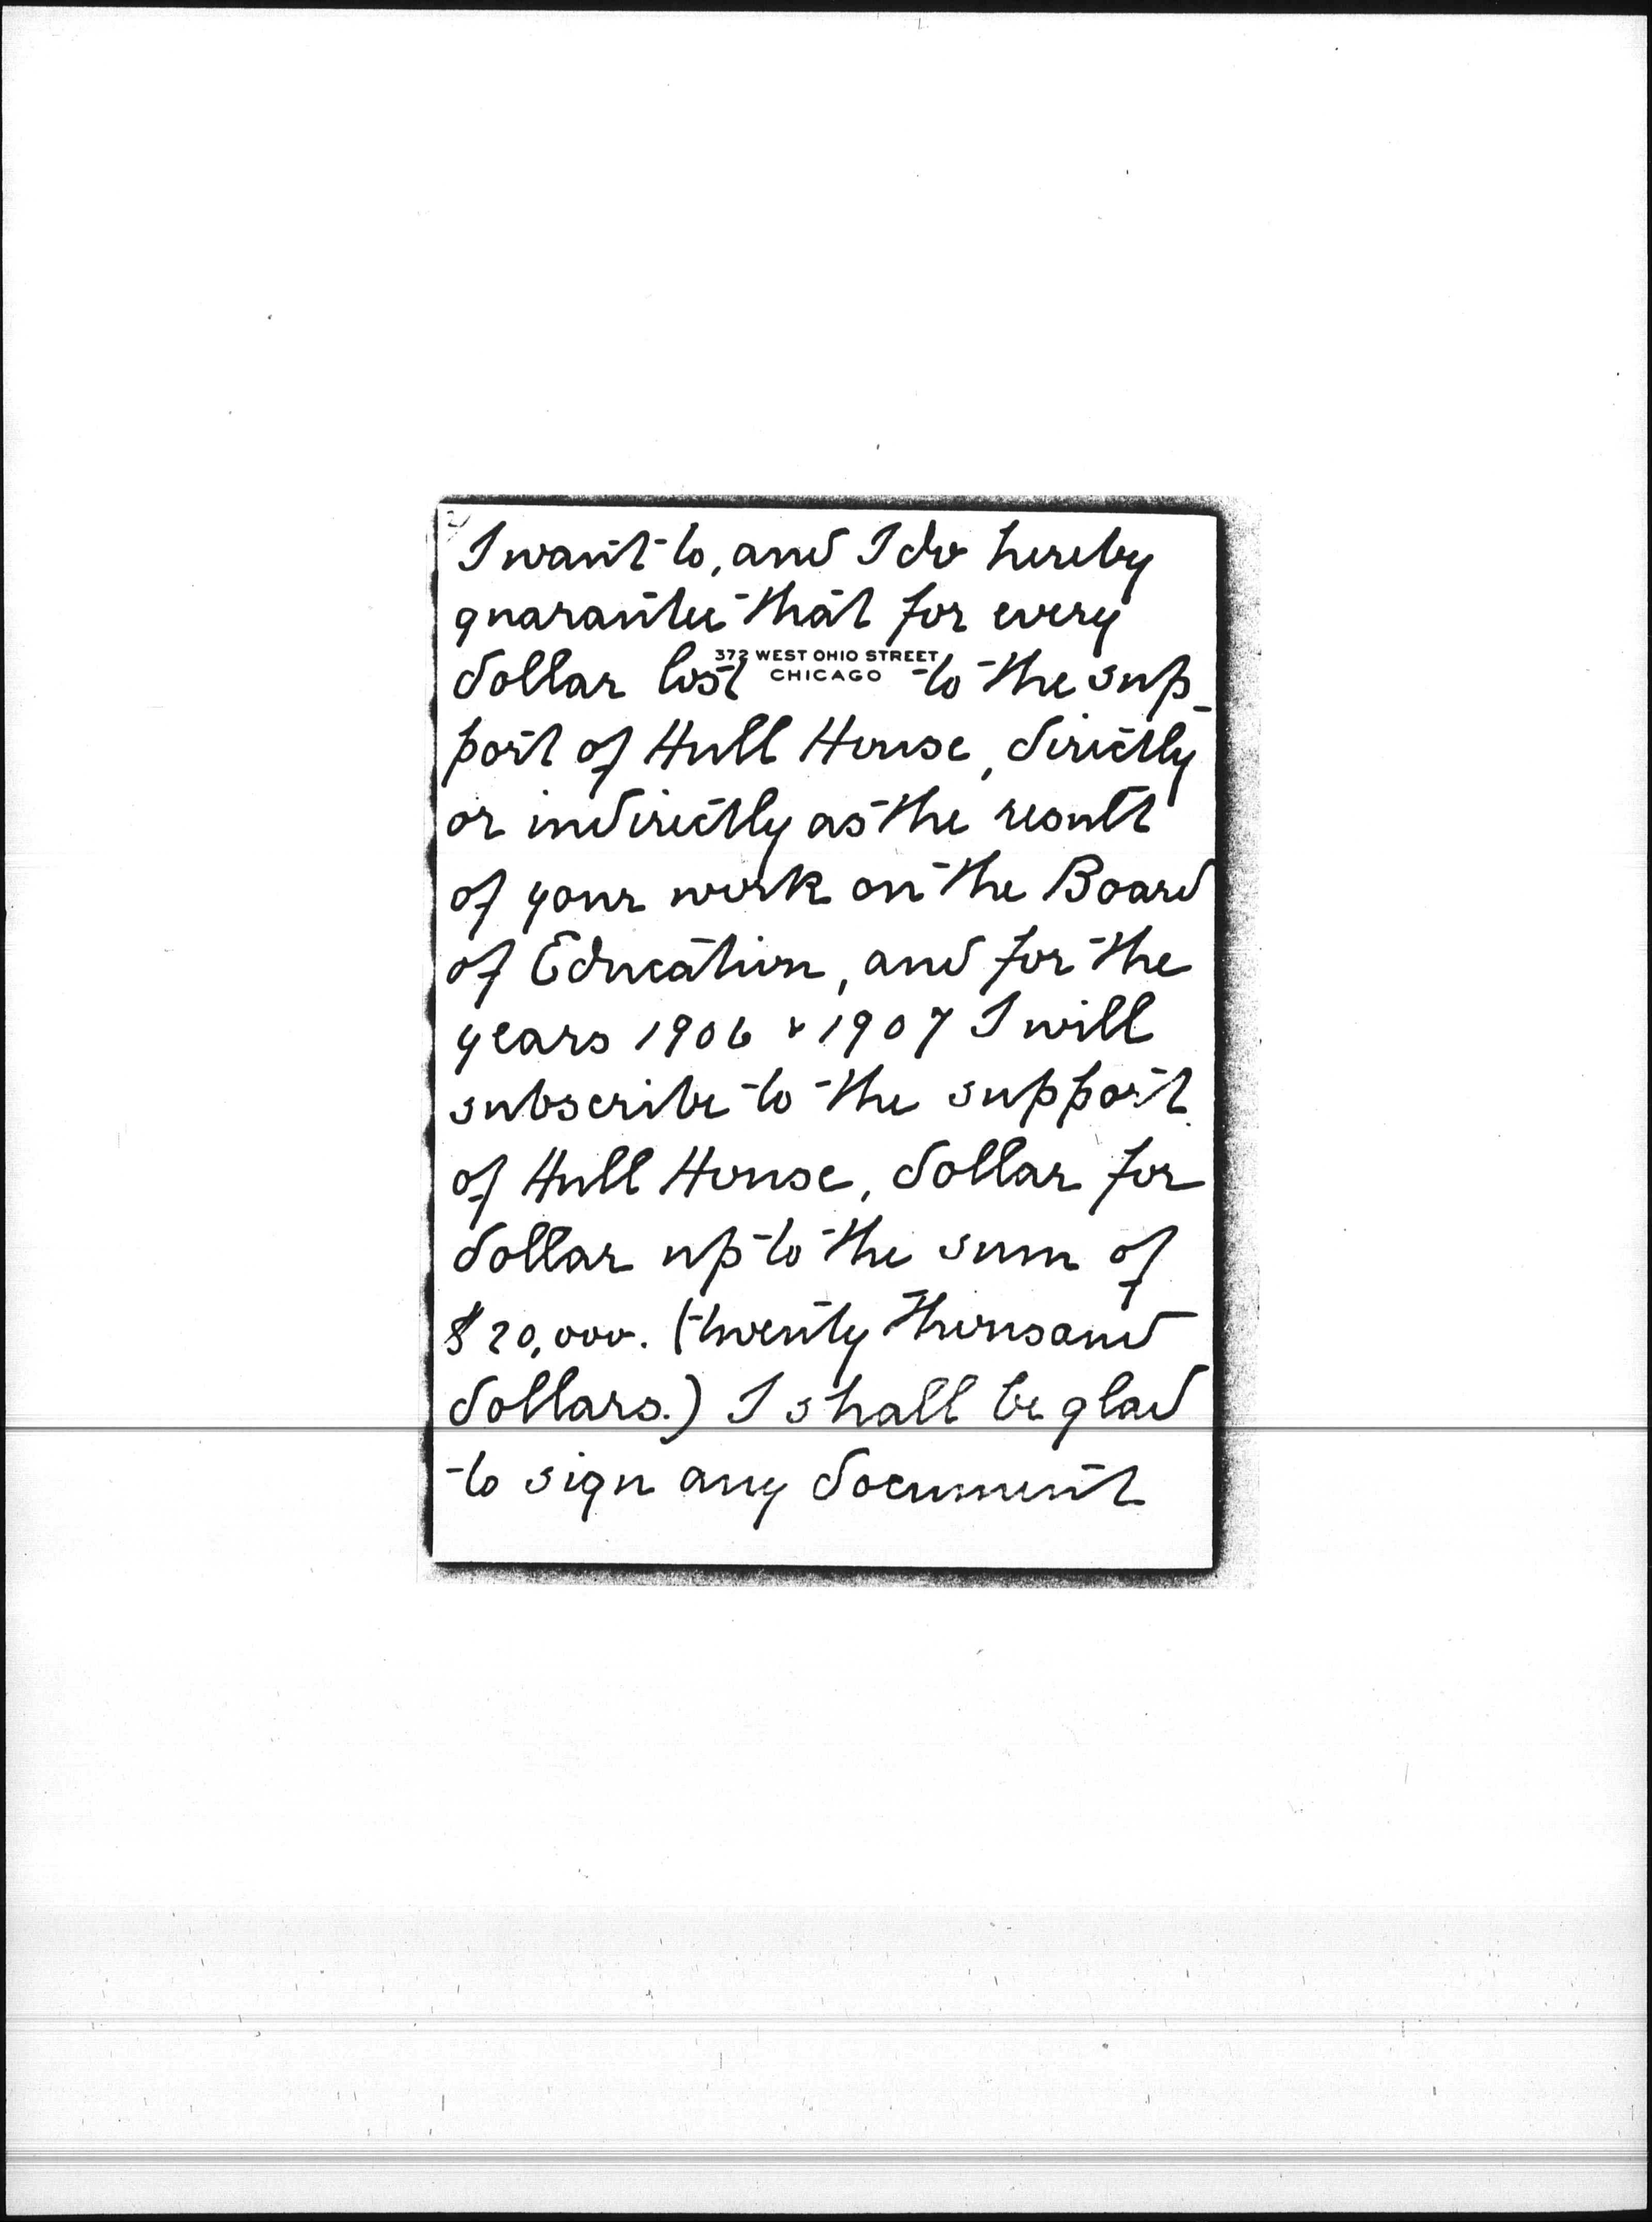 2)
I want to, and I do hereby
guarantee that for every
372 WEST OHIO STREET
CHICAGO
dollar lost to the sup-
port of Hull House, directly
or indirectly as the result
of your work on the Board
of Education, and for the
years 1906 & 1907 I will
subscribe to the support
of Hull House, dollar for
dollar up to the sum of
$20,000. (twenty thousand
dollars.) I shall be glad
to sign any document